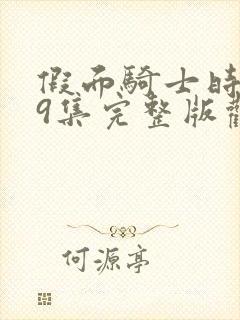 假面騎士時
9集完整版觀
何源亭